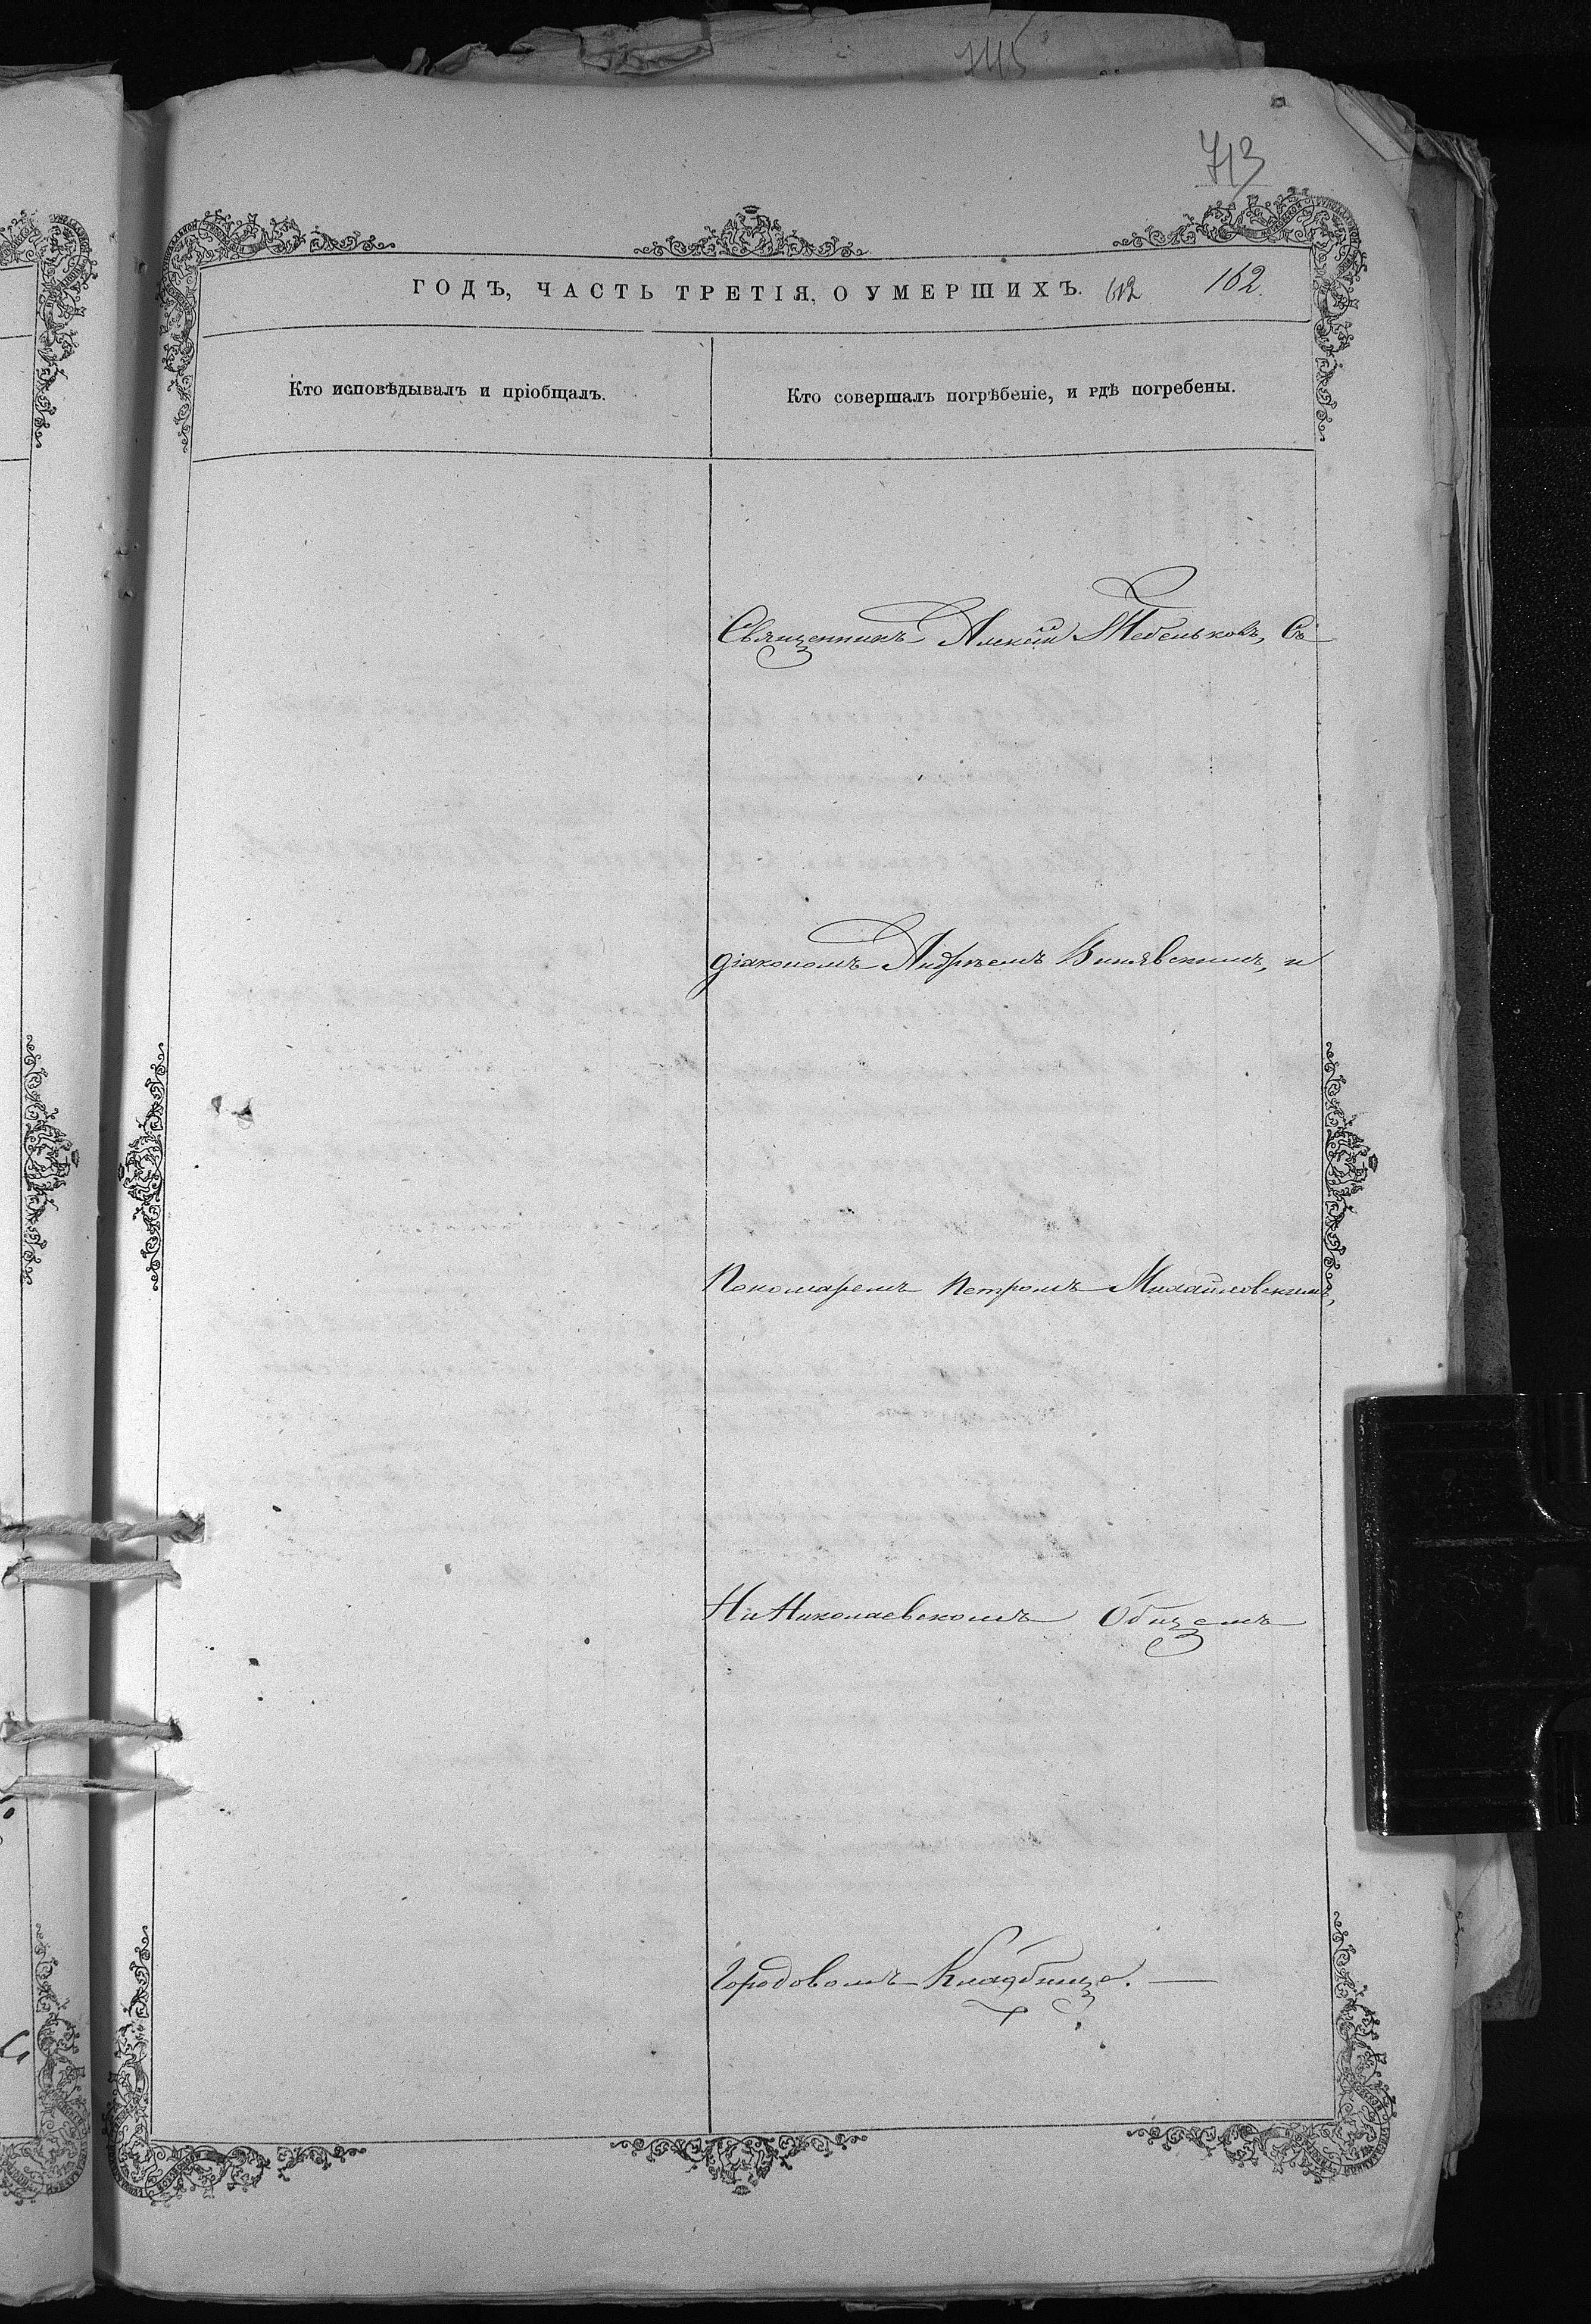 745
713
ГОДЪ, ЧАСТЬ ТРЕТІЯ, О УМЕРШИХЪ. 612 162.
Кто исповѣдывалъ и пріобщалъ.
Кто совершалъ погрѣбеніе, и гдѣ погребены.
Священникъ Алексѣй Тебеньковъ, Съ
діакономъ Андреемъ и
Пономаремъ Петромъ Михайловскимъ,
На Николаевскомъ Общемъ
Городовомъ Кладбище. —